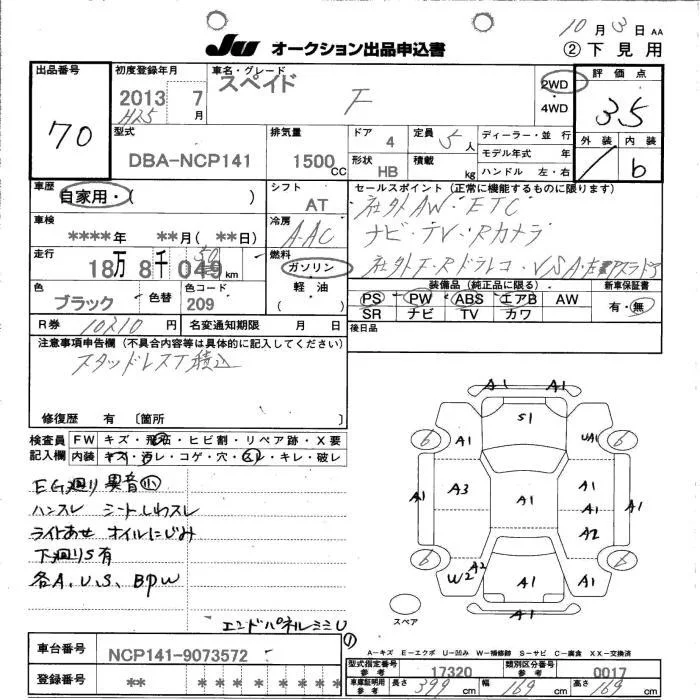 10月3日 AA
JU オークション出品申込書
②下見用
出品番号
70
初度登録年月
2013年7月
H25
車名・グレード
スペイド
F
2WD
・
4WD
評価点
3.5
外装 内装
b
型式
DBA-NCP141
排気量
1500cc
ドア 4
定員 5人
ディーラー・並行
モデル年式 年
形状 HB
積載 kg
ハンドル 左・右
車歴
自家用・( )
シフト
AT
セールスポイント(正常に機能するものに限ります)
社外AW・ETC
ナビ・TV・Rカメラ
車検
****年 **月(**日)
冷房
A-AC
走行
18万8千049km
50
燃料
ガソリン
軽油
( )
色
ブラック
色替
色コード
209
装備品(純正品に限る)
PS PW ABS エアB AW
SR ナビ TV カワ
新車保証書
有・無
R券 10210円
名変通知期限 月 日
後日品
注意事項申告欄(不具合内容等は具体的に記入してください)
スタッドレスT積込
修復歴 有 〔箇所 〕
検査員記入欄
FW キズ・飛石・ヒビ割・リペア跡・X要
内装 キズ・汚レ・コゲ・穴・スレ・キレ・破レ
EG廻り異音小
ハンスレ シートしわスレ
ライトあせ オイルにじみ
下廻りS有
各A、U、S、BPW
エンドパネルミミU
A1 A1
S1
6 A1 UA1 6
A1 A3 A1 A1 A1
A1
A2
6 W2 A2 A1 A1 6
A1 A1
スペア
A-キズ E-エクボ U-凹み W-補修跡 S-サビ C-腐食 XX-交換済
車台番号
NCP141-9073572
登録番号
** * * * * * * *
型式指定番号 参考
17320
類別区分番号 参考
0017
車庫証明用 参考
長さ 399cm 幅 169cm 高さ 169cm